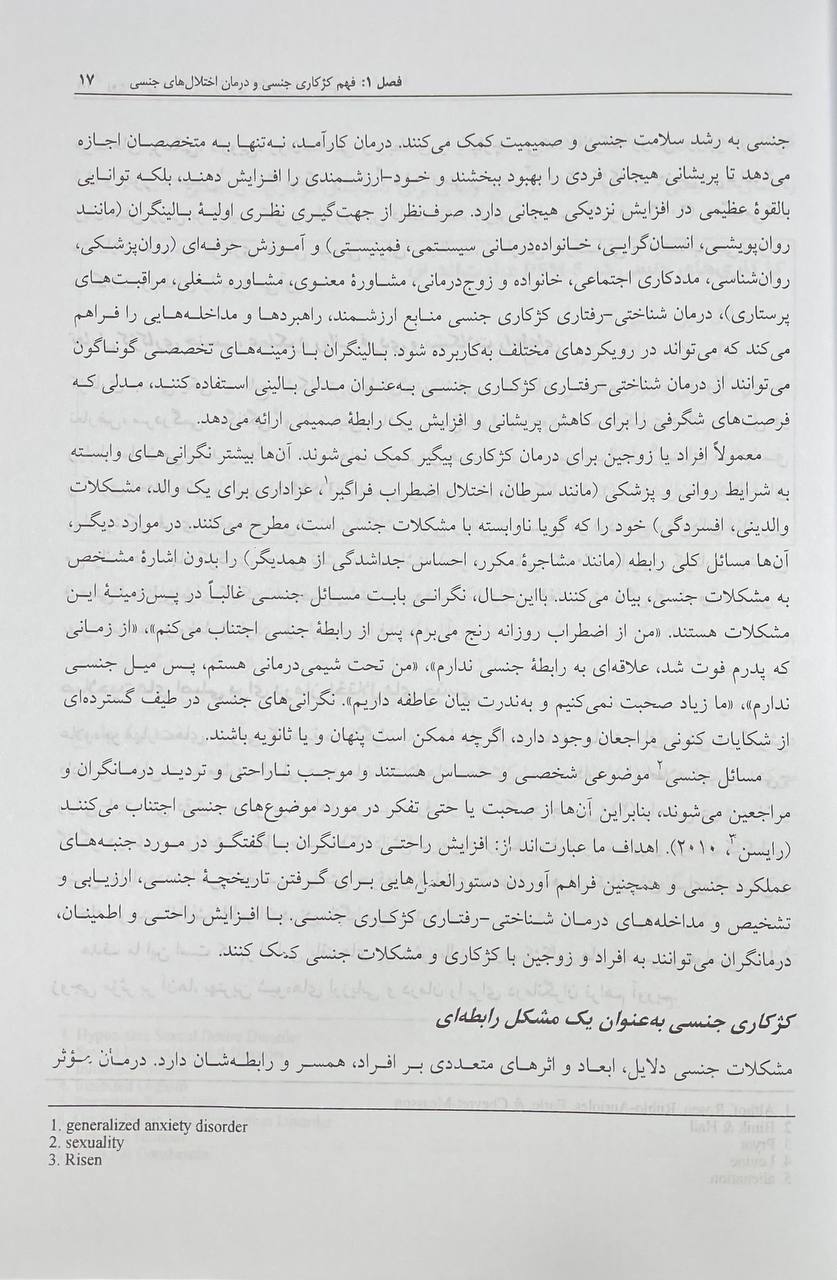 فصل ۱: فهم کژکاری جنسی و درمان اختلال‌های جنسی ۱۷
جنسی به رشد سلامت جنسی و صمیمیت کمک می‌کنند. درمان کارآمد، نه‌تنها به متخصصان اجازه
می‌دهد تا پریشانی هیجانی فردی را بهبود ببخشند و خود-ارزشمندی را افزایش دهند، بلکه توانایی
بالقوهٔ عظیمی در افزایش نزدیکی هیجانی دارد. صرف‌نظر از جهت‌گیری نظری اولیهٔ بالینگران (مانند
روان‌پویشی، انسان‌گرایی، خانواده‌درمانی سیستمی، فمینیستی) و آموزش حرفه‌ای (روان‌پزشکی،
روان‌شناسی، مددکاری اجتماعی، خانواده و زوج‌درمانی، مشاورهٔ معنوی، مشاوره شغلی، مراقبت‌های
پرستاری)، درمان شناختی-رفتاری کژکاری جنسی منابع ارزشمند، راهبردها و مداخله‌هایی را فراهم
می‌کند که می‌تواند در رویکردهای مختلف به‌کاربرده شود. بالینگران با زمینه‌های تخصصی گوناگون
می‌توانند از درمان شناختی-رفتاری کژکاری جنسی به‌عنوان مدلی بالینی استفاده کنند، مدلی که
فرصت‌های شگرفی را برای کاهش پریشانی و افزایش یک رابطهٔ صمیمی ارائه می‌دهد.
معمولاً افراد یا زوجین برای درمان کژکاری پیگیر کمک نمی‌شوند. آن‌ها بیشتر نگرانی‌های وابسته
به شرایط روانی و پزشکی (مانند سرطان، اختلال اضطراب فراگیر۱، عزاداری برای یک والد، مشکلات
والدینی، افسردگی) خود را که گویا ناوابسته با مشکلات جنسی است، مطرح می‌کنند. در موارد دیگر،
آن‌ها مسائل کلی رابطه (مانند مشاجرهٔ مکرر، احساس جداشدگی از همدیگر) را بدون اشارهٔ مشخص
به مشکلات جنسی، بیان می‌کنند. بااین‌حال، نگرانی بابت مسائل جنسی غالباً در پس‌زمینهٔ این
مشکلات هستند. «من از اضطراب روزانه رنج می‌برم، پس از رابطهٔ جنسی اجتناب می‌کنم»، «از زمانی
که پدرم فوت شد، علاقه‌ای به رابطهٔ جنسی ندارم»، «من تحت شیمی‌درمانی هستم، پس میل جنسی
ندارم»، «ما زیاد صحبت نمی‌کنیم و به‌ندرت بیان عاطفه داریم». نگرانی‌های جنسی در طیف گسترده‌ای
از شکایات کنونی مراجعان وجود دارد، اگرچه ممکن است پنهان و یا ثانویه باشند.
مسائل جنسی۲ موضوعی شخصی و حساس هستند و موجب ناراحتی و تردید درمانگران و
مراجعین می‌شوند، بنابراین آن‌ها از صحبت یا حتی تفکر در مورد موضوع‌های جنسی اجتناب می‌کنند
(رایسن۳، ۲۰۱۰). اهداف ما عبارت‌اند از: افزایش راحتی درمانگران با گفتگو در مورد جنبه‌های
عملکرد جنسی و همچنین فراهم آوردن دستورالعمل‌هایی برای گرفتن تاریخچهٔ جنسی، ارزیابی و
تشخیص و مداخله‌های درمان شناختی-رفتاری کژکاری جنسی. با افزایش راحتی و اطمینان،
درمانگران می‌توانند به افراد و زوجین با کژکاری و مشکلات جنسی کمک کنند.
کژکاری جنسی به‌عنوان یک مشکل رابطه‌ای
مشکلات جنسی دلایل، ابعاد و اثرهای متعددی بر افراد، همسر و رابطه‌شان دارد. درمان مؤثر
1. generalized anxiety disorder
2. sexuality
3. Risen